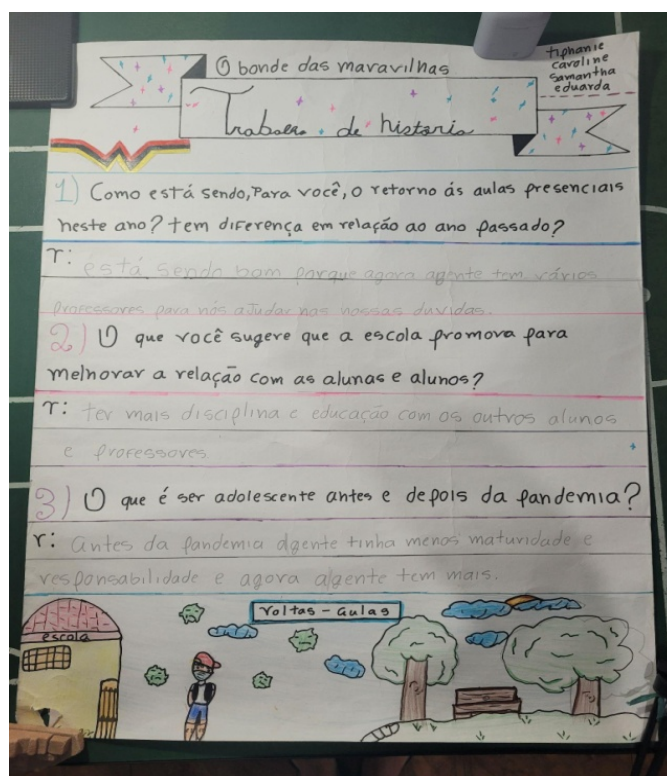 O bonde das maravilhas
tiphanie
caroline
samantha
eduarda
Trabalho de historia
1) Como está sendo, Para você, o retorno ás aulas presenciais
neste ano? tem diferença em relação ao ano passado?
r: está sendo bom porque agora agente tem vários
professores para nós ajudar nas nossas duvidas.
2) O que você sugere que a escola promova para
melhorar a relação com as alunas e alunos?
r: ter mais disciplina e educação com os outros alunos
e professores
3) O que é ser adolescente antes e depois da pandemia?
r: antes da pandemia agente tinha menos maturidade e
responsabilidade e agora agente tem mais.
Voltas - Aulas
escola